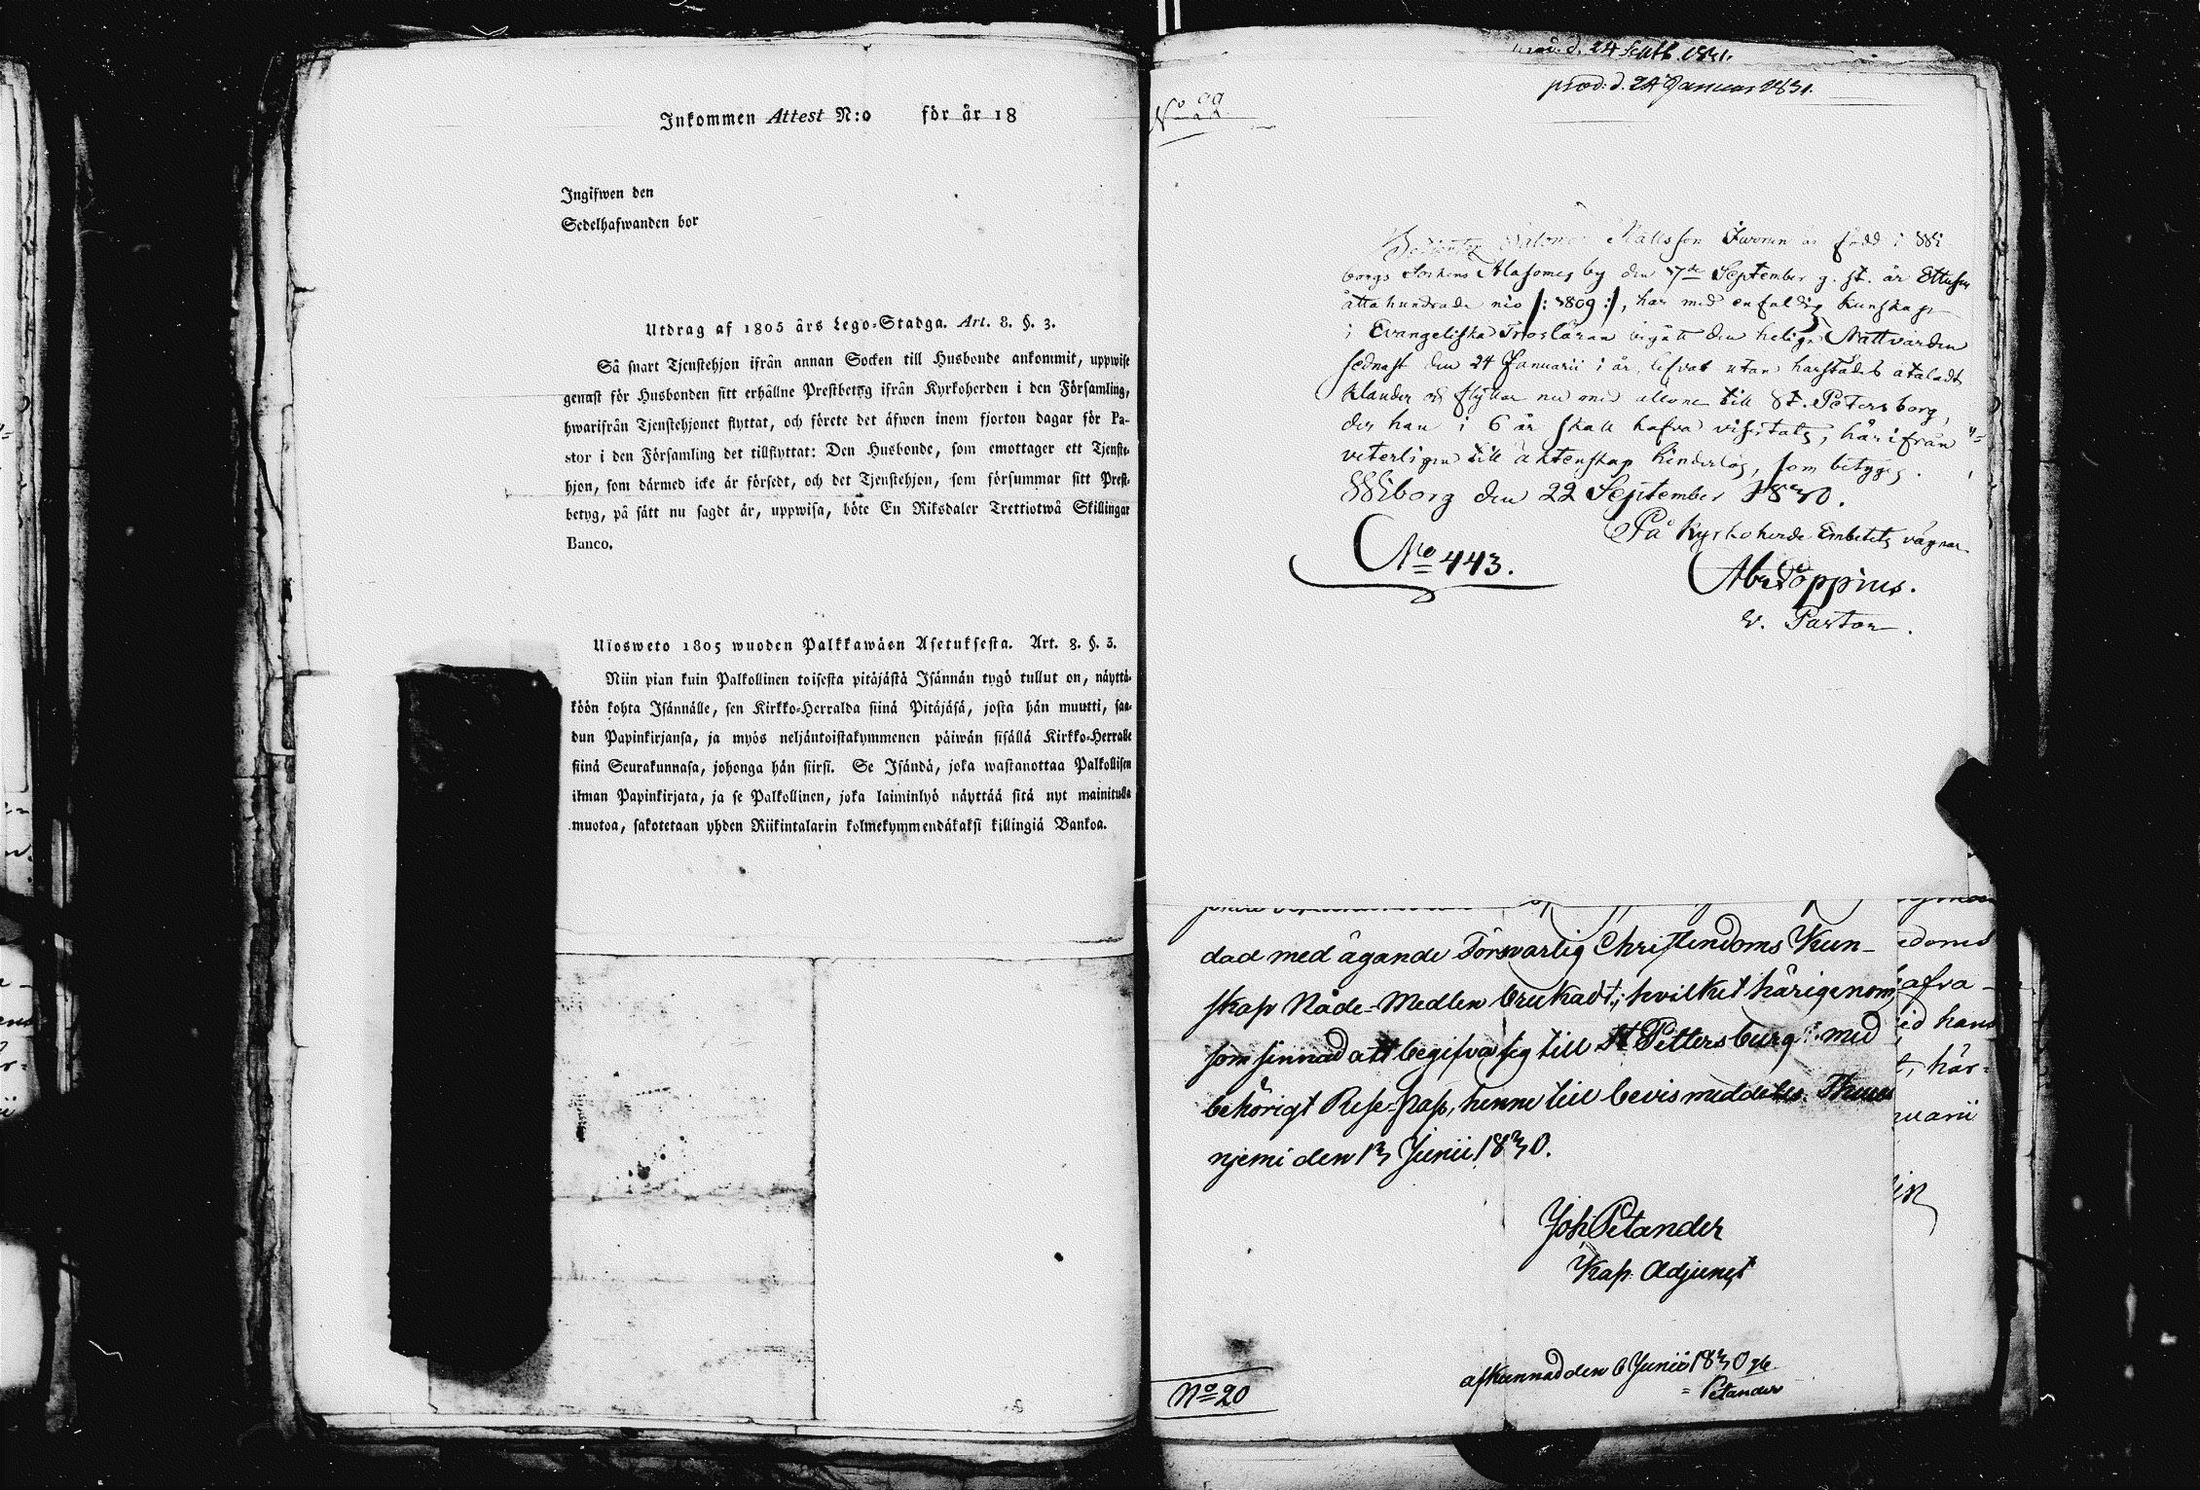 Inkommen Attest N:o för år 18
Ingifwen den
Sedelhafwanden bor
Utdrag af 1805 års Lego-Stadga. Art. 8. §. 3.
Så snart Tjenstehjon ifrån annan Socken till Husbonde ankommit, uppwise
genast för Husbonden sitt erhållne Prestbetyg ifrån Kyrkoherden i den Församling,
hwarifrån Tjenstehjonet flyttat, och förete det äfwen inom fjorton dagar för Pa-
stor i den Församling det tillflyttat: Den Husbonde, som emottager ett Tjenste-
hjon, som därmed icke är försedt, och det Tjenstehjon, som försummar sitt Prest-
betyg, på sätt nu sagdt är, uppwisa, böte En Riksdaler Trettiotwå Skillingar
Banco.
Ulosweto 1805 wuoden Palkkawäen Asetuksesta. Art. 8. §. 3.
Niin pian kuin Palkollinen toisesta pitäjästä Isännän tygö tullut on, näyttä-
köön kohta Isännälle, sen Kirkko-Herralda siinä Pitäjäsä, josta hän muutti, saa-
dun Papinkirjansa, ja myös neljäntoistakymmenen päiwän sisällä Kirkko-Herralle
siinä Seurakunnasa, johonga hän siirsi. Se Isändä, joka wastanottaa Palkollisen
ilman Papinkirjata, ja se Palkollinen, joka laiminlyö näyttää sitä nyt mainitulla
muotoa, sakotetaan yhden Riikintalarin kolmekymmendäkaksi killingiä Bankoa.
d. 24 Septb. 1831.
prod. d. 24 Januar 1831.
No
Salomon Mattsson är född i Wi-
borgs Sockens Alasomeg by den 7de September g. st. år Ettusen
åttahundrade nio /: 1809 :/, har med enfaldig kunskap
i Evangeliska Trosläran begått den heliga Nattvarden
sednast den 24 Januarii i år, lefvat utan härstädes åtaladt
klander och flyttar nu med till St. Petersborg,
der han i 6 år skall hafva vistats, härifrån
veterligen till äktenskap hinderlös, som betygas.
Wiborg den 22 September 1830.
På Kyrkoherde Embetets vägnar
No 443.
Abr. Poppius.
v. Pastor.
dad med ägande Försvarlig Christendoms Kun-
skap Nåde-Medlen brukadt; hvilket härigenom
som sinnad att begifva sig till St Pettersburg med
behörigt Rese-Pass, henne till bevis meddelas. Thuus
njemi den 13 Junii 1830.
Joh Petander
Kap. Adjunct
afkunnad den 6 Junii 1830
Petander
No 20
edoms
hafva
id hans
t, här-
nuarii